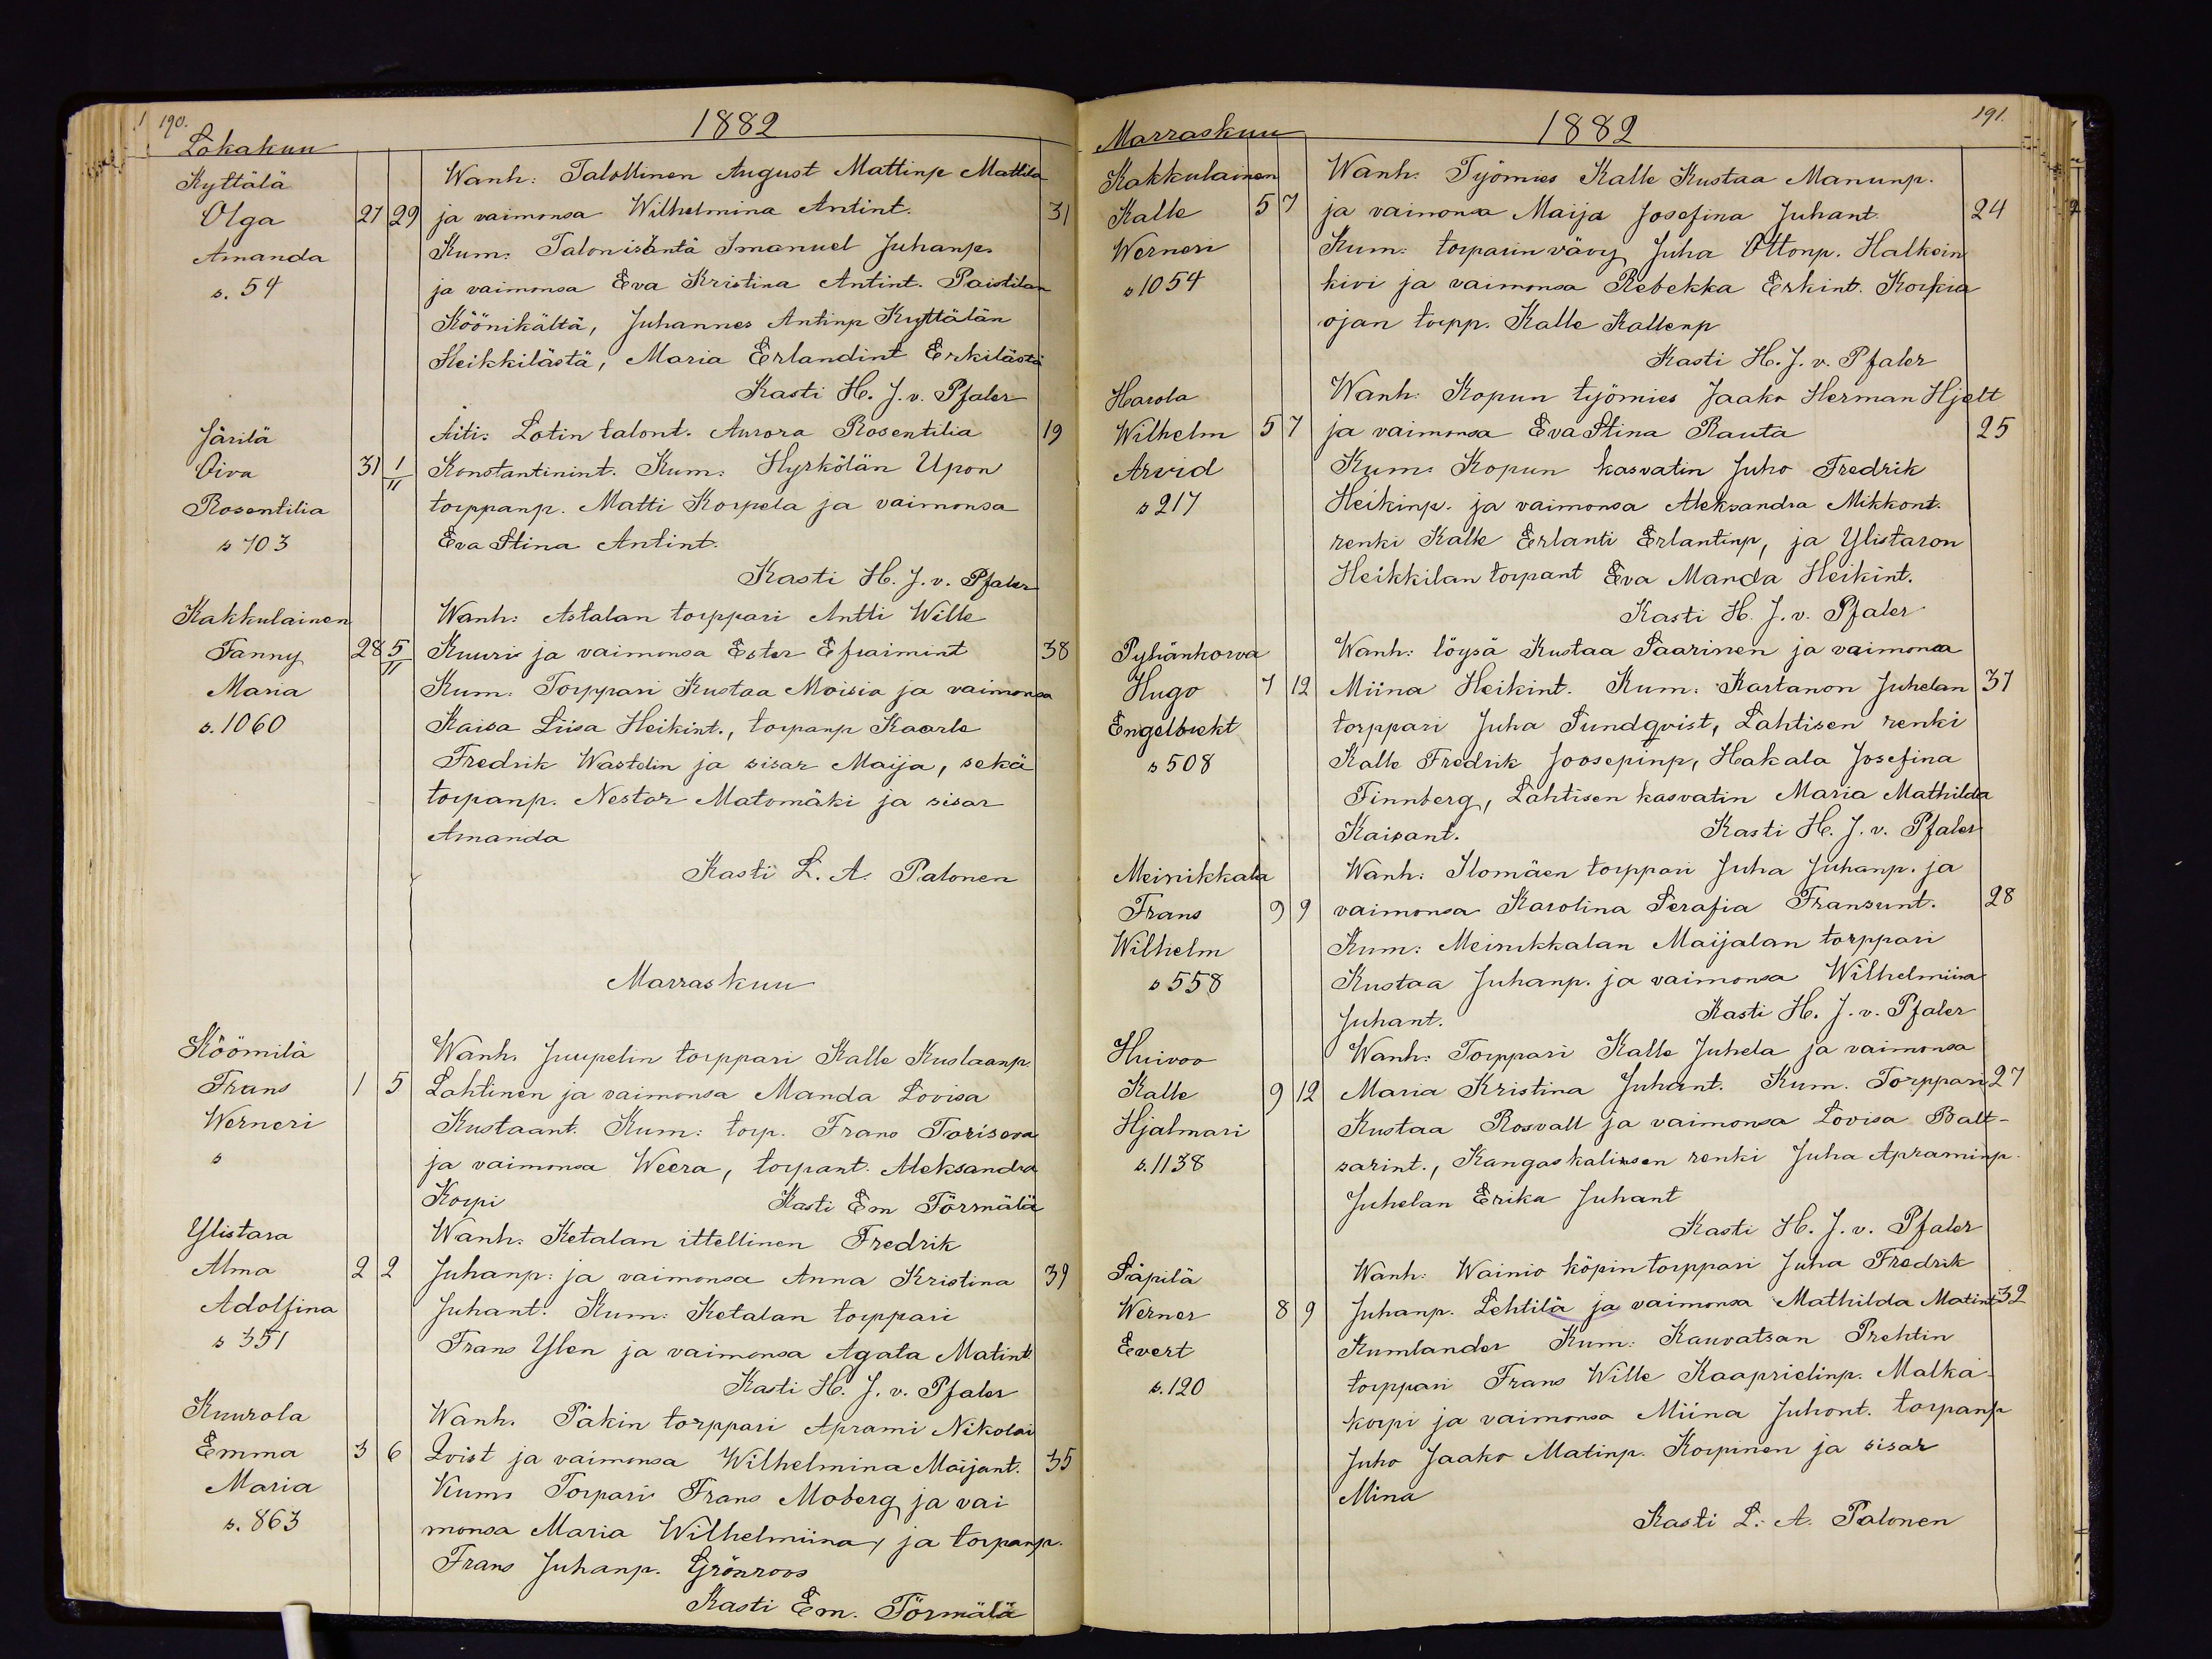 190.
1882
Lokakuu
Kyttälä Wanh: Talollinen August Mattinp Mattila
Olga 27 29 ja vaimonsa Wilhelmina Antint. 31
Amanda Kum: Talonisäntä Imanuel Juhanp.
s. 54 ja vaimonsa Eva Kristina Antint. Paistilan
Köönikältä, Juhannes Antinp Kyttälän
Heikkilästä, Maria Erlandint Erkilästä
Kasti H. J. v. Pfaler
Järilä Äiti: Lotin talont. Aurora Rosentilia 19
Oiva 31 1/11 Konstantinint. Kum: Hyrkölän Upon
Rosentilia torppanp. Matti Korpela ja vaimonsa
s 703 Eva Stina Antint.
Kasti H. J. v. Pfaler
Kakkulainen Wanh: Astalan torppari Antti Wille
Fanny 28 5/11 Kuuri ja vaimonsa Ester Efraimint 38
Maria Kum: Torppari Kustaa Moisio ja vaimonsa
s. 1060 Kaisa Liisa Heikint., torpanp Kaarle
Fredrik Wastelin ja sisar Maija, sekä
torpanp. Nestor Matomäki ja sisar
Amanda
Kasti L. A. Palonen
Marraskuu
Köömilä Wanh. Juupelin torppari Kalle Kustaanp.
Frans 1 5 Lahtinen ja vaimonsa Manda Lovisa
Werneri Kustaant. Kum: torp. Frans Torisova
s ja vaimonsa Weera, torpant. Aleksandra
Korpi Kasti Em Törmälä
Ylistara Wanh. Ketalan ittellinen Fredrik
Alma 2 2 Juhanp: ja vaimonsa Anna Kristina 39
Adolfina Juhant. Kum: Ketalan torppari
s 351 Frans Ylen ja vaimonsa Agata Matint.
Kasti H. J. v. Pfaler
Kuurola Wanh. Päkin torppari Aprami Nikolai
Emma 3 6 Qvist ja vaimonsa Wilhelmina Maijant. 35
Maria Kum: Torpari Frans Moberg ja vai
s. 863 monsa Maria Wilhelmiina, ja torpanp.
Frans Juhanp. Grönroos
Kasti Em. Törmälä
191.
1882
Marraskuu
Kakkulainen Wanh. Työmies Kalle Kustaa Manunp.
Kalle 5 7 ja vaimonsa Maija Josefina Juhant. 24
Werneri Kum: torparin vävy Juha Ottonp. Halkein
s 1054 kivi ja vaimonsa Rebekka Erkint. Korkia
ojan torpp. Kalle Kallenp
Kasti H. J. v. Pfaler
Harola Wanh: Kopun työmies Jaako Herman Hjelt
Wilhelm 5 7 ja vaimonsa Eva Stina Rauta 25
Arvid Kum: Kopun kasvatin Juho Fredrik
s 217 Heikinp. ja vaimonsa Aleksandra Mikkont.
renki Kalle Erlanti Erlantinp, ja Ylistaron
Heikkilan torpant Eva Manda Heikint.
Kasti H. J. v. Pfaler
Pyhänkorva Wanh: löysä Kustaa Saarinen ja vaimonsa
Hugo 7 12 Miina Heikint. Kum: Kartanon Juhelan 37
Engelbrekt torppari Juha Sundqvist, Lahtisen renki
s 508 Kalle Fredrik Joosepinp, Hakala Josefina
Finnberg, Lahtisen kasvatin Maria Mathilda
Kaisant. Kasti H. J. v. Pfaler
Meinikkala Wanh: Ilomäen torppari Juha Juhanp. ja
Frans 9 9 vaimonsa Karolina Serafia Fransunt. 28
Wilhelm Kum: Meinikkalan Maijalan torppari
s 558 Kustaa Juhanp. ja vaimonsa Wilhelmiina
Juhant. Kasti H. J. v. Pfaler
Huivoo Wanh: Torppari Kalle Juhela ja vaimonsa
Kalle 9 12 Maria Kristina Juhant. Kum. Torppari 27
Hjalmari Kustaa Rosvall ja vaimonsa Lovisa Balt-
s. 1138 sarint., Kangaskalinsen renki Juha Apraminp.
Juhelan Erika Juhant
Kasti H. J. v. Pfaler
Säpilä Wanh: Wainio köpin torppari Juha Fredrik
Werner 8 9 Juhanp. Lehtilä ja vaimonsa Mathilda Matint 32
Evert Kumlander Kum: Kauvatsan Prehtin
s. 120 torppari Frans Wille Kaaprielinp. Malka-
korpi ja vaimonsa Miina Juhont. torpanp
Juho Jaako Matinp. Korpinen ja sisar
Mina
Kasti L. A. Palonen